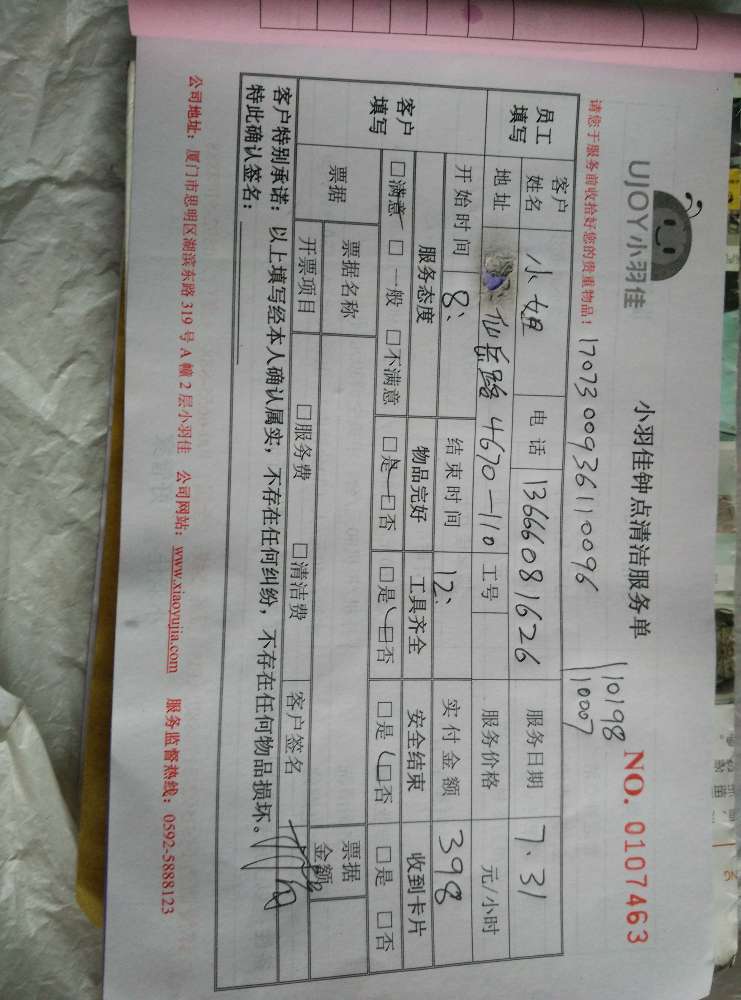 UJOY小羽佳
小羽佳钟点清洁服务单
NO. 0107463
110198
10007
请您于服务前收拾好您的贵重物品！ 1707300936110096
员工填写 客户姓名 小姐 电话 13666081626 服务日期 7.31
地址 仙岳路4670-110 工号 服务价格 元/小时
开始时间 8: 结束时间 12: 实付金额 398
客户填写 服务态度 物品完好 工具齐全 安全结束 收到卡片
□满意 □一般 □不满意 □是 □否 □是 □否 □是 □否 □是 □否
票据 票据名称 票据金额
开票项目 □服务费 □清洁费 客户签名
客户特别承诺：以上填写经本人确认属实，不存在任何纠纷，不存在任何物品损坏。
特此确认签名：
公司地址：厦门市思明区湖滨东路319号A幢2层小羽佳 公司网站：www.xiaoyujia.com 服务监督热线：0592-5888123